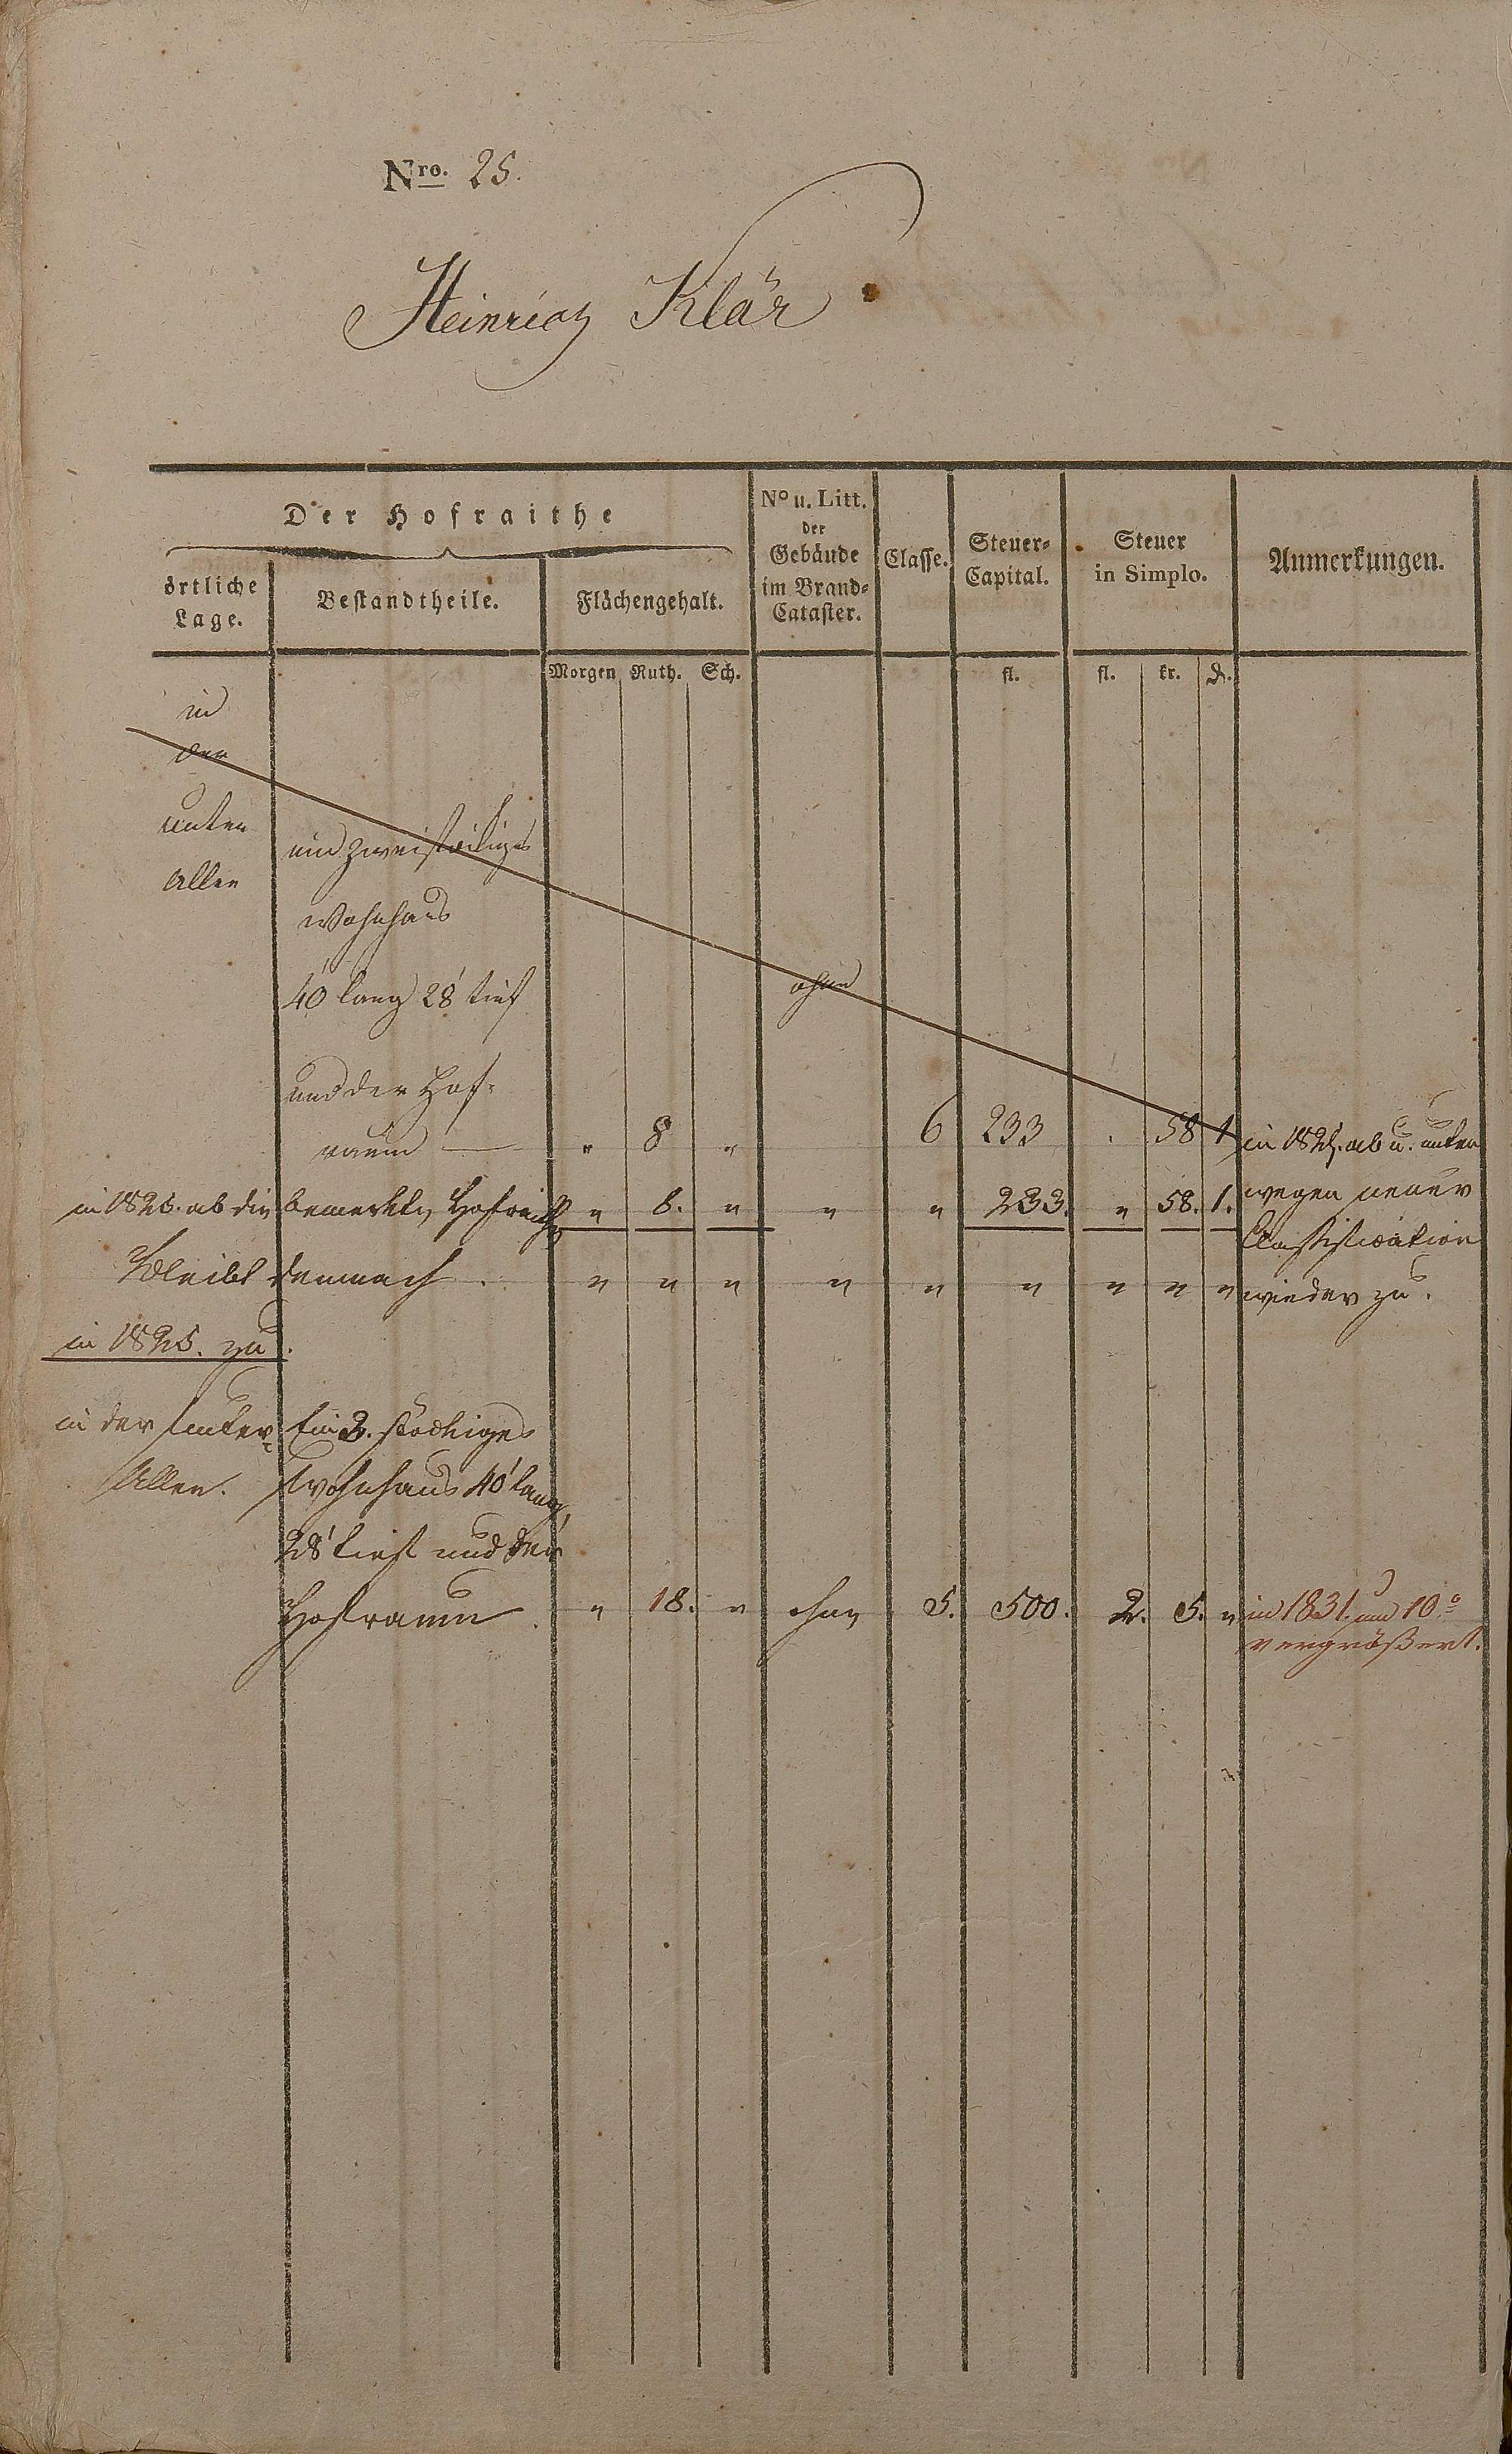 Nro. 25.
Heinrich Klär
Der Hofraithe
örtliche Lage.
Bestandtheile.
Flächengehalt.
No u. Litt. der Gebäude im Brand-Cataster.
Classe.
Steuer-Capital.
Steuer in Simplo.
Anmerkungen.
Morgen Ruth. Sch. fl. fl. kr. d.
in
der
unten
Allee
ein zweistöckiges
Wohnhaus
40' lang 28' tief
ohne
und der Hof-
raum — " 8 " 6 233 . 58 1
in 1825. ab u. unten
wegen neuer
Classification
wieder zu.
in 1825. ab die bemerkte Hofraithe " 8. " " " 233. " 58. 1.
Bleibt demnach. " " " " " " " " "
in 1825. zu.
in der unter
Allee.
Ein 2. stöckiges
Wohnhaus 40' lang,
28' tief und der
Hofraum. " 18. " ohne 5. 500. 2. 5. "
in 1831. um 10
vergrößert.